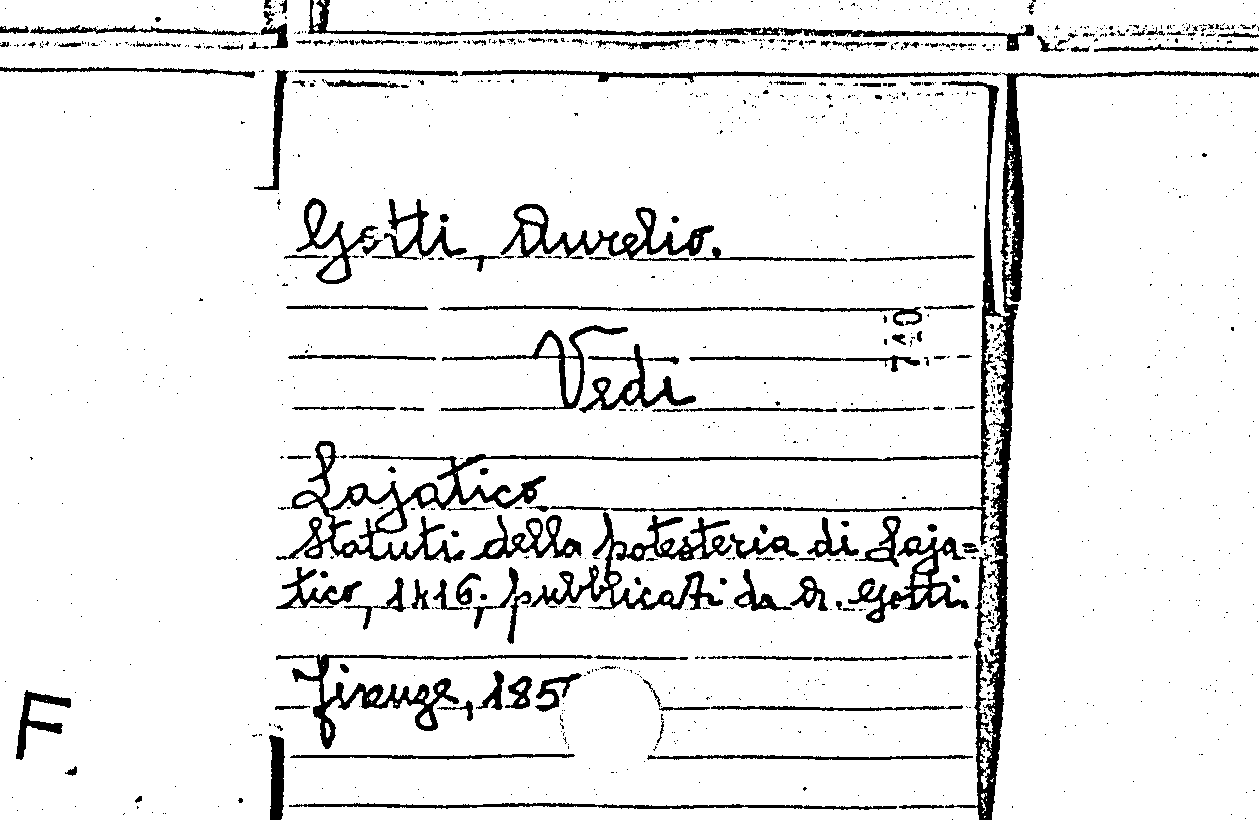 Gotti, Aurelio.
740
Vedi
Lajatico
Statuti della potesteria di Laja=
tico, 1416; pubblicati da A. Gotti.
Firenze, 185
F.